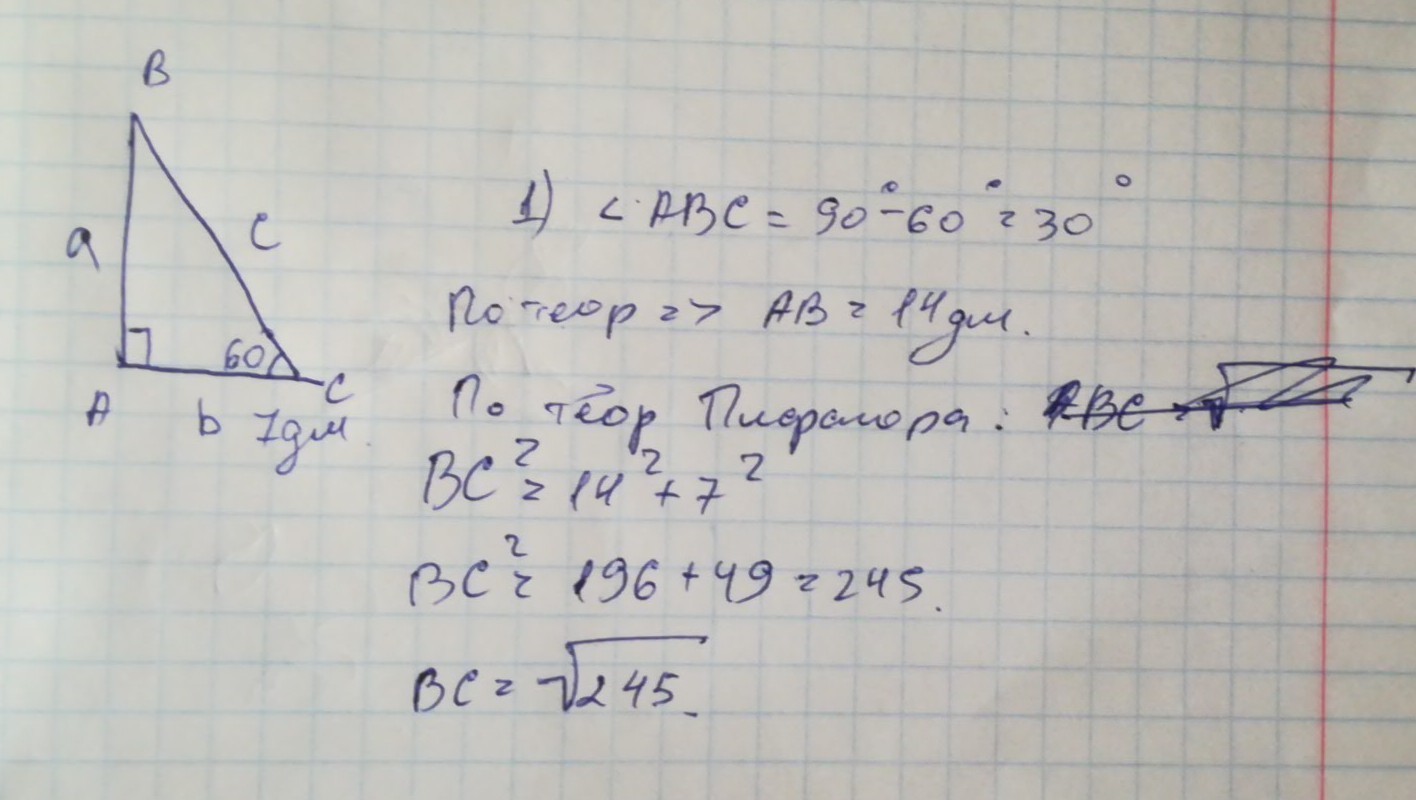 B
a
C
60
A
b 7дм.
C
1) < ABC = 90° - 60° = 30°
По теор => AB = 14дм.
По теор Пифагора:
BC² = 14² + 7²
BC² = 196 + 49 = 245.
BC = √245.